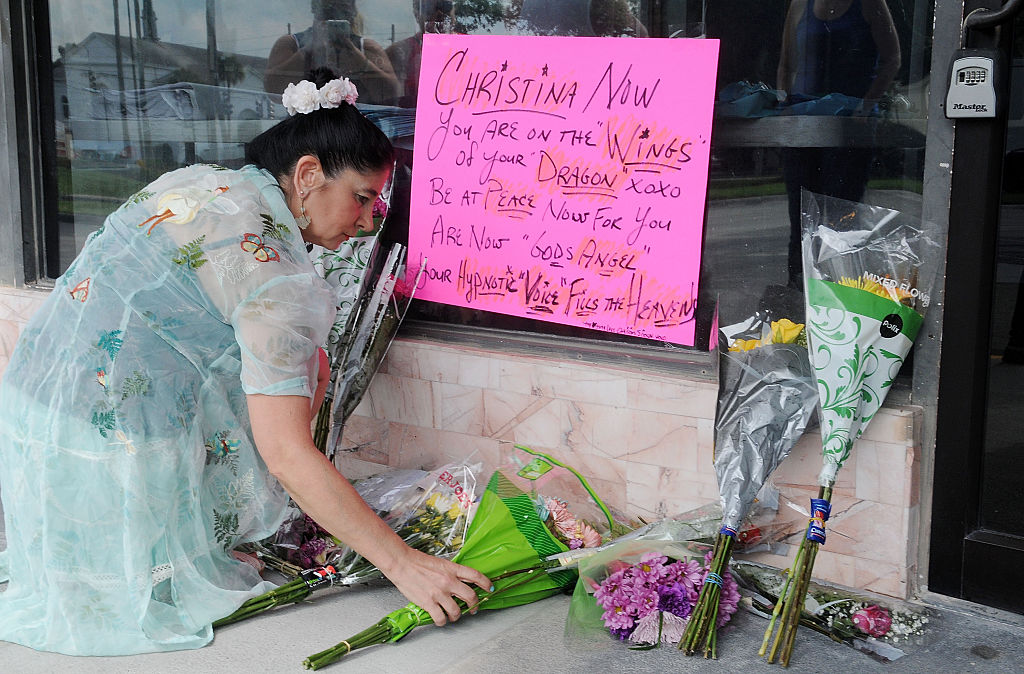 Christina Now
You are on the "Wings"
of your "Dragon" xoxo
Be at Peace Now For You
Are Now "Gods Angel"
Your Hypnotic "Voice" Fills the Heavens
Master
Lock
MIXED FLOW
Publix